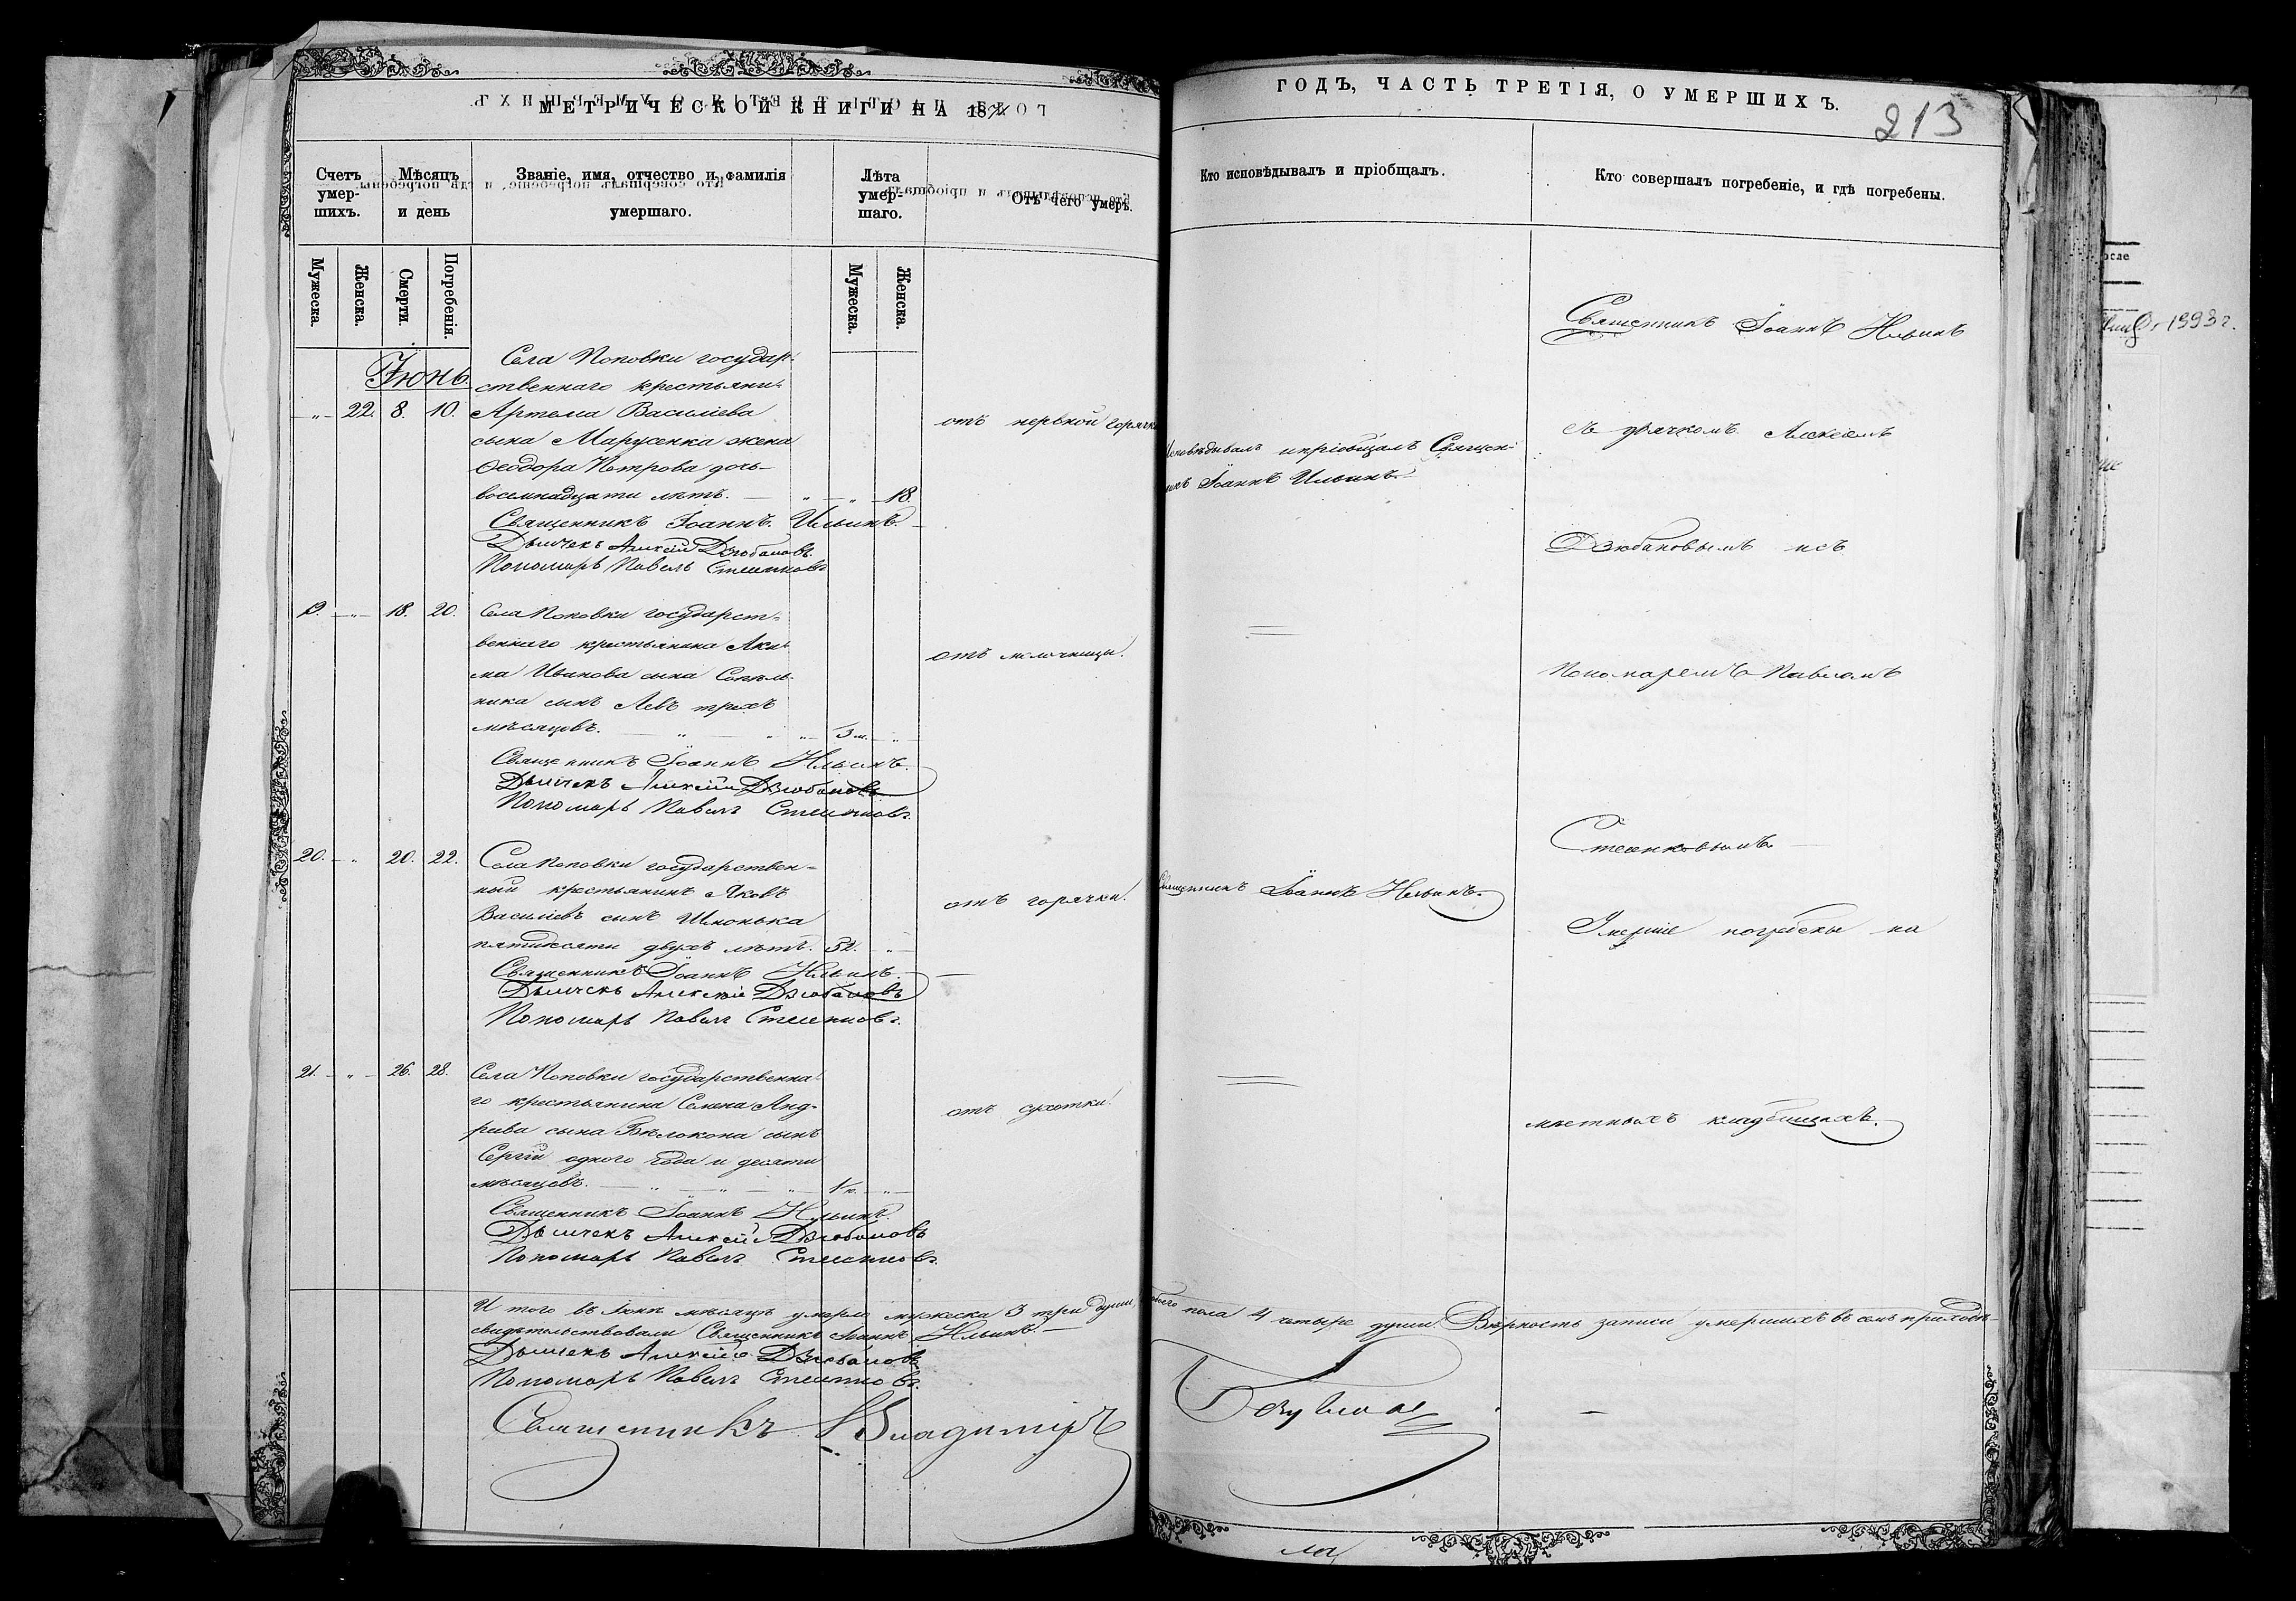 МЕТРИЧЕСКОЙ КНИГИ НА 18
Счетъ умер-шихъ.
Мѣсяцъ и день
Званіе, имя, отчество и фамилія умершаго.
Лѣта умер-шаго.
Отъ чего умеръ.
Мужеска.
Женска.
Смерти.
Погребенія.
Мужеска.
Женска.
Іюнь
Села Поповки государ-
ственнаго крестьяни-
22. 8. 10. Артема Василіева
сына Марусенка жена
Феодора Петрова дочь
восемнадцати лѣтъ. 18.
отъ нервной горячки
Священникъ Іоаннъ Ильинъ.
Дьячекъ Алексій Дзюбановъ.
Пономарь Павелъ
19. 18. 20. Села Поповки государст-
веннаго крестьянина Аки-
ма Иванова сына
ника сынъ Левъ трехъ
мѣсяцовъ. 3 м.
отъ молочницы.
Священникъ Іоаннъ Ильинъ.
Дьячекъ Алексій Дзюбановъ
Пономарь Павелъ
20. 20. 22. Села Поповки государствен-
ный крестьянинъ Яковъ
Василіевъ сынъ Шконька
пятидесяти двухъ лѣтъ. 52.
отъ горячки.
Священникъ Іоаннъ Ильинъ.
Дьячекъ Алексій Дзюбановъ
Пономарь Павелъ
21. 26. 28. Села Поповки государственна-
го крестьянина Семена Анд-
реева сына Бѣлокона сынъ
Сергій одного года и десяти
мѣсяцовъ.
отъ сухотки.
Священникъ Іоаннъ Ильинъ.
Дьячекъ Алексій Дзюбановъ
Пономарь Павелъ
И того въ Іюнѣ мѣсяцѣ умерло мужеска 3 три души,
свидѣтельствовали Священникъ Іоаннъ Ильинъ.
Дьячекъ Алексій Дзюбановъ
Пономарь Павелъ
Священникъ Владимиръ
ГОДЪ, ЧАСТЬ ТРЕТІЯ, О УМЕРШИХЪ.
213
Кто исповѣдывалъ и пріобщалъ.
Кто совершалъ погребеніе, и гдѣ погребены.
Исповѣдывалъ и пріобщалъ Священ-
никъ Іоаннъ Ильинъ.
Священникъ Іоаннъ Ильинъ.
Священникъ Іоаннъ Ильинъ
съ дьячкомъ Алексіемъ
Дзюбановымъ и съ
Пономаремъ Павломъ
Умершіе погребены на
мѣстныхъ кладбищахъ.
обоего пола 4 четыре души. Вѣрность записи умершихъ въ семъ приходѣ
1993 г.